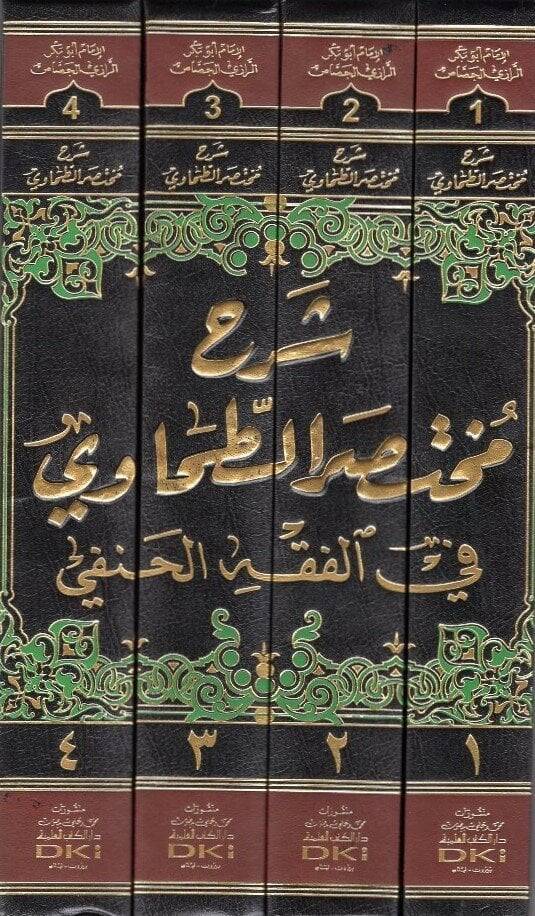 الإمام أبو بكر
الرازي الجصاص
1
شرح
مختصر الطحاوي
الإمام أبو بكر
الرازي الجصاص
2
شرح
مختصر الطحاوي
الإمام أبو بكر
الرازي الجصاص
3
شرح
مختصر الطحاوي
الإمام أبو بكر
الرازي الجصاص
4
شرح
مختصر الطحاوي
شرح
مختصر الطحاوي
في الفقه الحنفي
١
٢
٣
٤
منشورات
محمد علي بيضون
دار الكتب العلمية
DKi
بيروت - لبنان
منشورات
محمد علي بيضون
دار الكتب العلمية
DKi
بيروت - لبنان
منشورات
محمد علي بيضون
دار الكتب العلمية
DKi
بيروت - لبنان
منشورات
محمد علي بيضون
دار الكتب العلمية
DKi
بيروت - لبنان